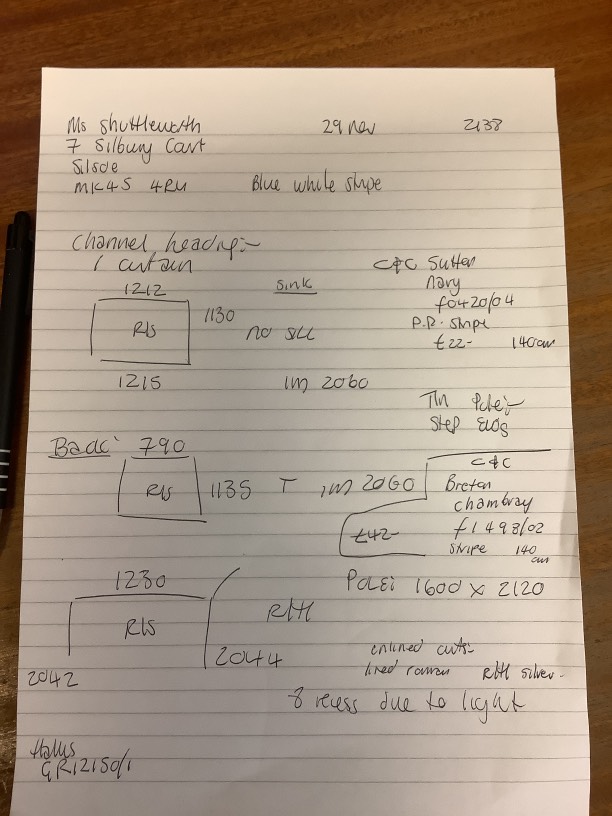 Ms Shuttleworth 29 Nov 2138
7 Silbury Court
Silsoe
MK45 4RU Blue white stripe
Channel heading:-
1 curtain
1212 sink
R/S 1130 no sill
1215 1m 2060
C&C Sutton
navy
f0420/04
P.R. Stripe
£22- 140cm
Tln Pole:-
Step ends
Back: 790
R/S 1135 T 1m 2060
C&C
Breton
chambray
£42- f1498/02
stripe 140
cm
Pole: 1600 x 2120
1230
R/S R/H
2044
2042
unlined curts-
lined roman R/H silver-
8 recess due to light
GR12150/1